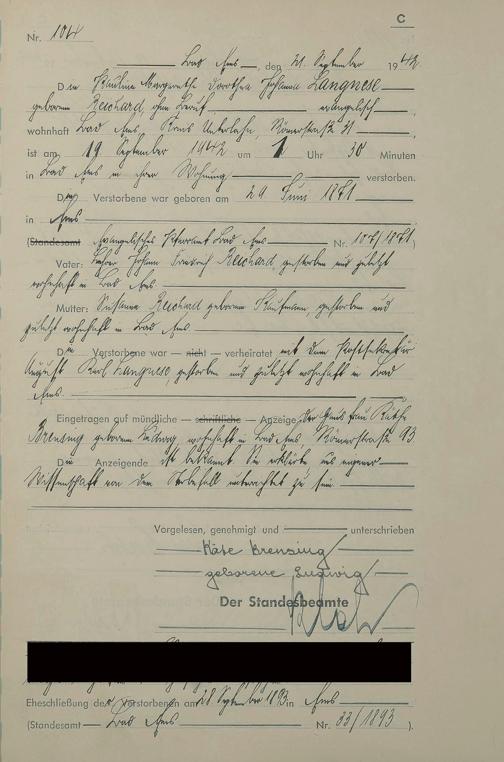 C
Nr. 104
Bad Ems, den 21. September 1942
Die Pauline Margarethe Dorothea Johanna Langnese
geborene Reichard, ohne Beruf, evangelisch,
wohnhaft Bad Ems, Kreis Unterlahn, Römerstraße 31,
ist am 19 September 1942 um 1 Uhr 30 Minuten
in Bad Ems in ihrer Wohnung verstorben.
Die Verstorbene war geboren am 29 Juni 1871
in Ems
(Standesamt Evangelisches Pfarramt Bad Ems Nr. 107/1871)
Vater: Johann Reichard, gestorben und zuletzt
wohnhaft in Bad Ems
Mutter: Susanna Reichard geborene Kaufmann, gestorben und
zuletzt wohnhaft in Bad Ems
Die Verstorbene war — nicht — verheiratet mit dem Postsekretär
August Karl Langnese, gestorben und zuletzt wohnhaft in Bad
Ems.
Eingetragen auf mündliche — schriftliche — Anzeige der Frau Käthe
Brensing geborene Ludwig, wohnhaft in Bad Ems, Römerstraße 93
Die Anzeigende ist bekannt. Sie erklärte, aus eigener
Wissenschaft von dem Sterbefall unterrichtet zu sein.
Vorgelesen, genehmigt und unterschrieben
Käte Brensing
geborene Ludwig
Der Standesbeamte
Eheschließung der Verstorbenen am 28 September 1893 in Ems
(Standesamt Bad Ems Nr. 33/1893).